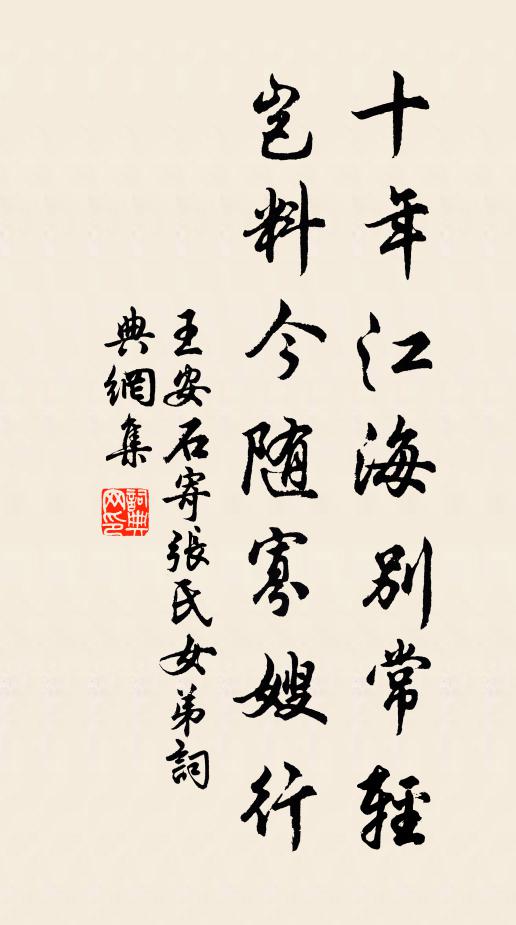 十年江海別常輕
豈料今隨寡嫂行
王安石寄張氏女弟詞
典網集
詞典网印